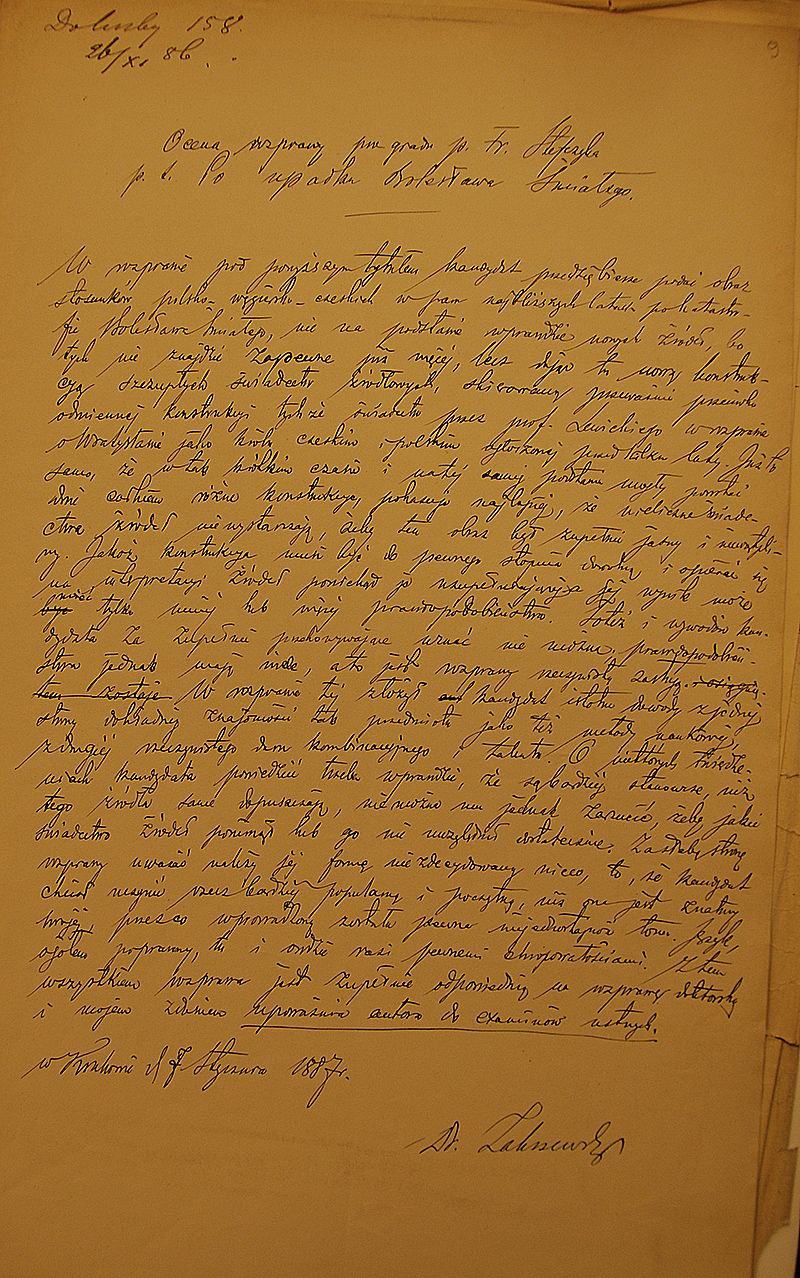 Do liczby 158.
26/XI 86.
9
Ocena rozprawy pro gradu p. Fr. Stefczyka
p. t. Po upadku Bolesława Śmiałego.
W rozprawie pod powyższym tytułem kandydat przedsiębierze podać obraz
stosunków polsko-węgiersko-czeskich w paru najbliższych latach po katastro-
fie Bolesława Śmiałego, nie na podstawie wprawdzie nowych źródeł, bo
tych nie znajdzie zapewne już więcej, lecz dając tu nową konstruk-
cyą szczupłych świadectw źródłowych, skierowaną przeważnie przeciwko
odmiennej konstrukcyi tychże świadectw przez prof. Lewickiego w rozprawie
o Wratysławie jako królu czeskim i polskim ogłoszonej przed kilku laty. Już to
samo, że w tak krótkim czasie i na tej samej podstawie mogły powstać
dwie całkiem różne konstrukcye, pokazuje najlepiej, że nieliczne świade-
ctwa źródeł nie wystarczają, żeby ten obraz był zupełnie jasny i
ny. Jakoż konstrukcya musi być do pewnego stopnia dowolną i opierać się
na interpretacyi źródeł poniekąd je uzupełniającej a jej wynik może
mieć tylko mniej lub więcej prawdopodobieństwa. Toteż i wywodów kan-
dydata za zupełnie przekonywające uznać nie można, prawdopodobień-
stwo jednak mają wiele, a to jest rozprawy rzeczywistą zasługą
W rozprawie tej złożył kandydat istotne dowody z jednej
strony dokładnej znajomości tak przedmiotu jako też metody naukowej,
z drugiej rzeczywistego daru kombinacyjnego i talentu. O niektórych twierdze-
niach kandydata powiedzieć trzeba wprawdzie, że są bardziej stanowcze, niż
tego źródła same dopuszczają, nie można mu jednak zarzucić, żeby jakie
świadectwo źródeł pominął lub go nie uwzględnił dostatecznie. Za słabą stronę
rozprawy uważać należy jej formę niezdecydowaną nieco, to, że kandydat
chciał uczynić rzecz bardziej popularną i poczytną, niż ona jest z natury
swojej, przez co wprowadzoną została pewna niejednolitość tonu. Język,
ogółem poprawny, tu i owdzie razi pewnemi chropowatościami. Z tem
wszystkiem rozprawa jest zupełnie odpowiednią na rozprawę doktorską
i mojem zdaniem upoważnia autora do examinów ustnych.
w Krakowie d. 7 Stycznia 1887 r.
Dr. Zakrzewski